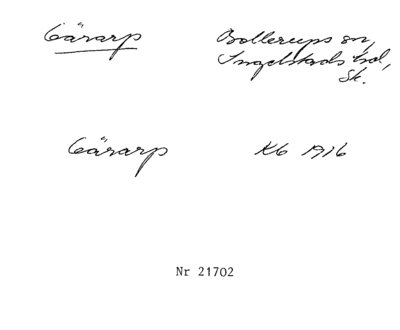 Gärarp Bollerups sn,
Ingelstads hd,
Sk.
Gärarp Kb 1916
Nr 21702